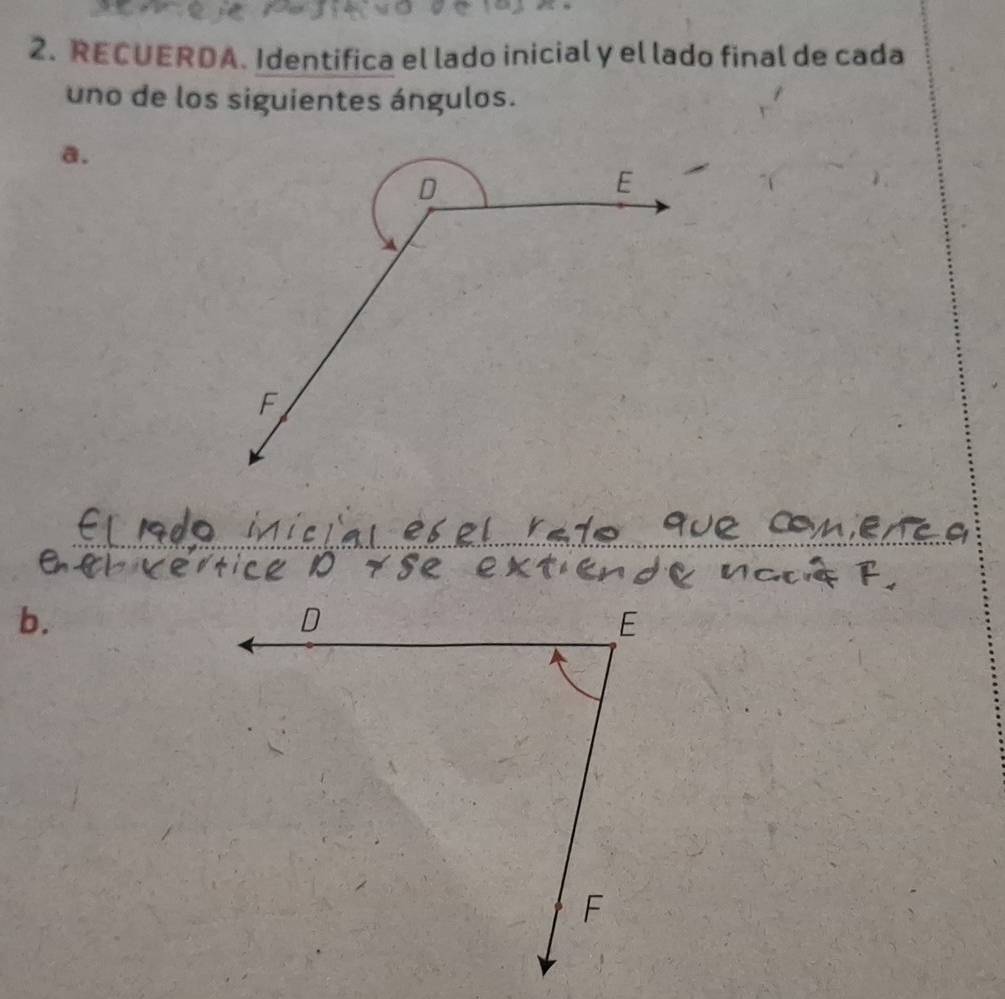 2. RECUERDA. Identifica el lado inicial y el lado final de cada
uno de los siguientes ángulos.
a.
D
E
F
El lado inicial es el rato que comienza
en el vértice D y se extiende hacia F.
b.
D
E
F